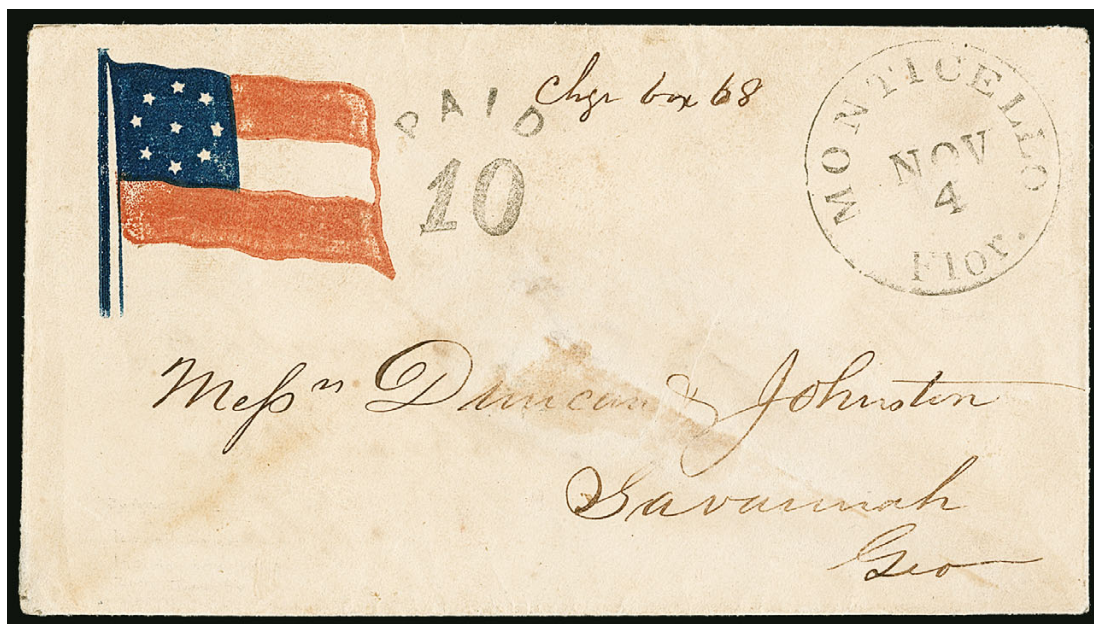 PAID
10
Chge box 68
MONTICELLO
NOV
4
Flor.
Messrs Duncan & Johnston
Savannah
Geo